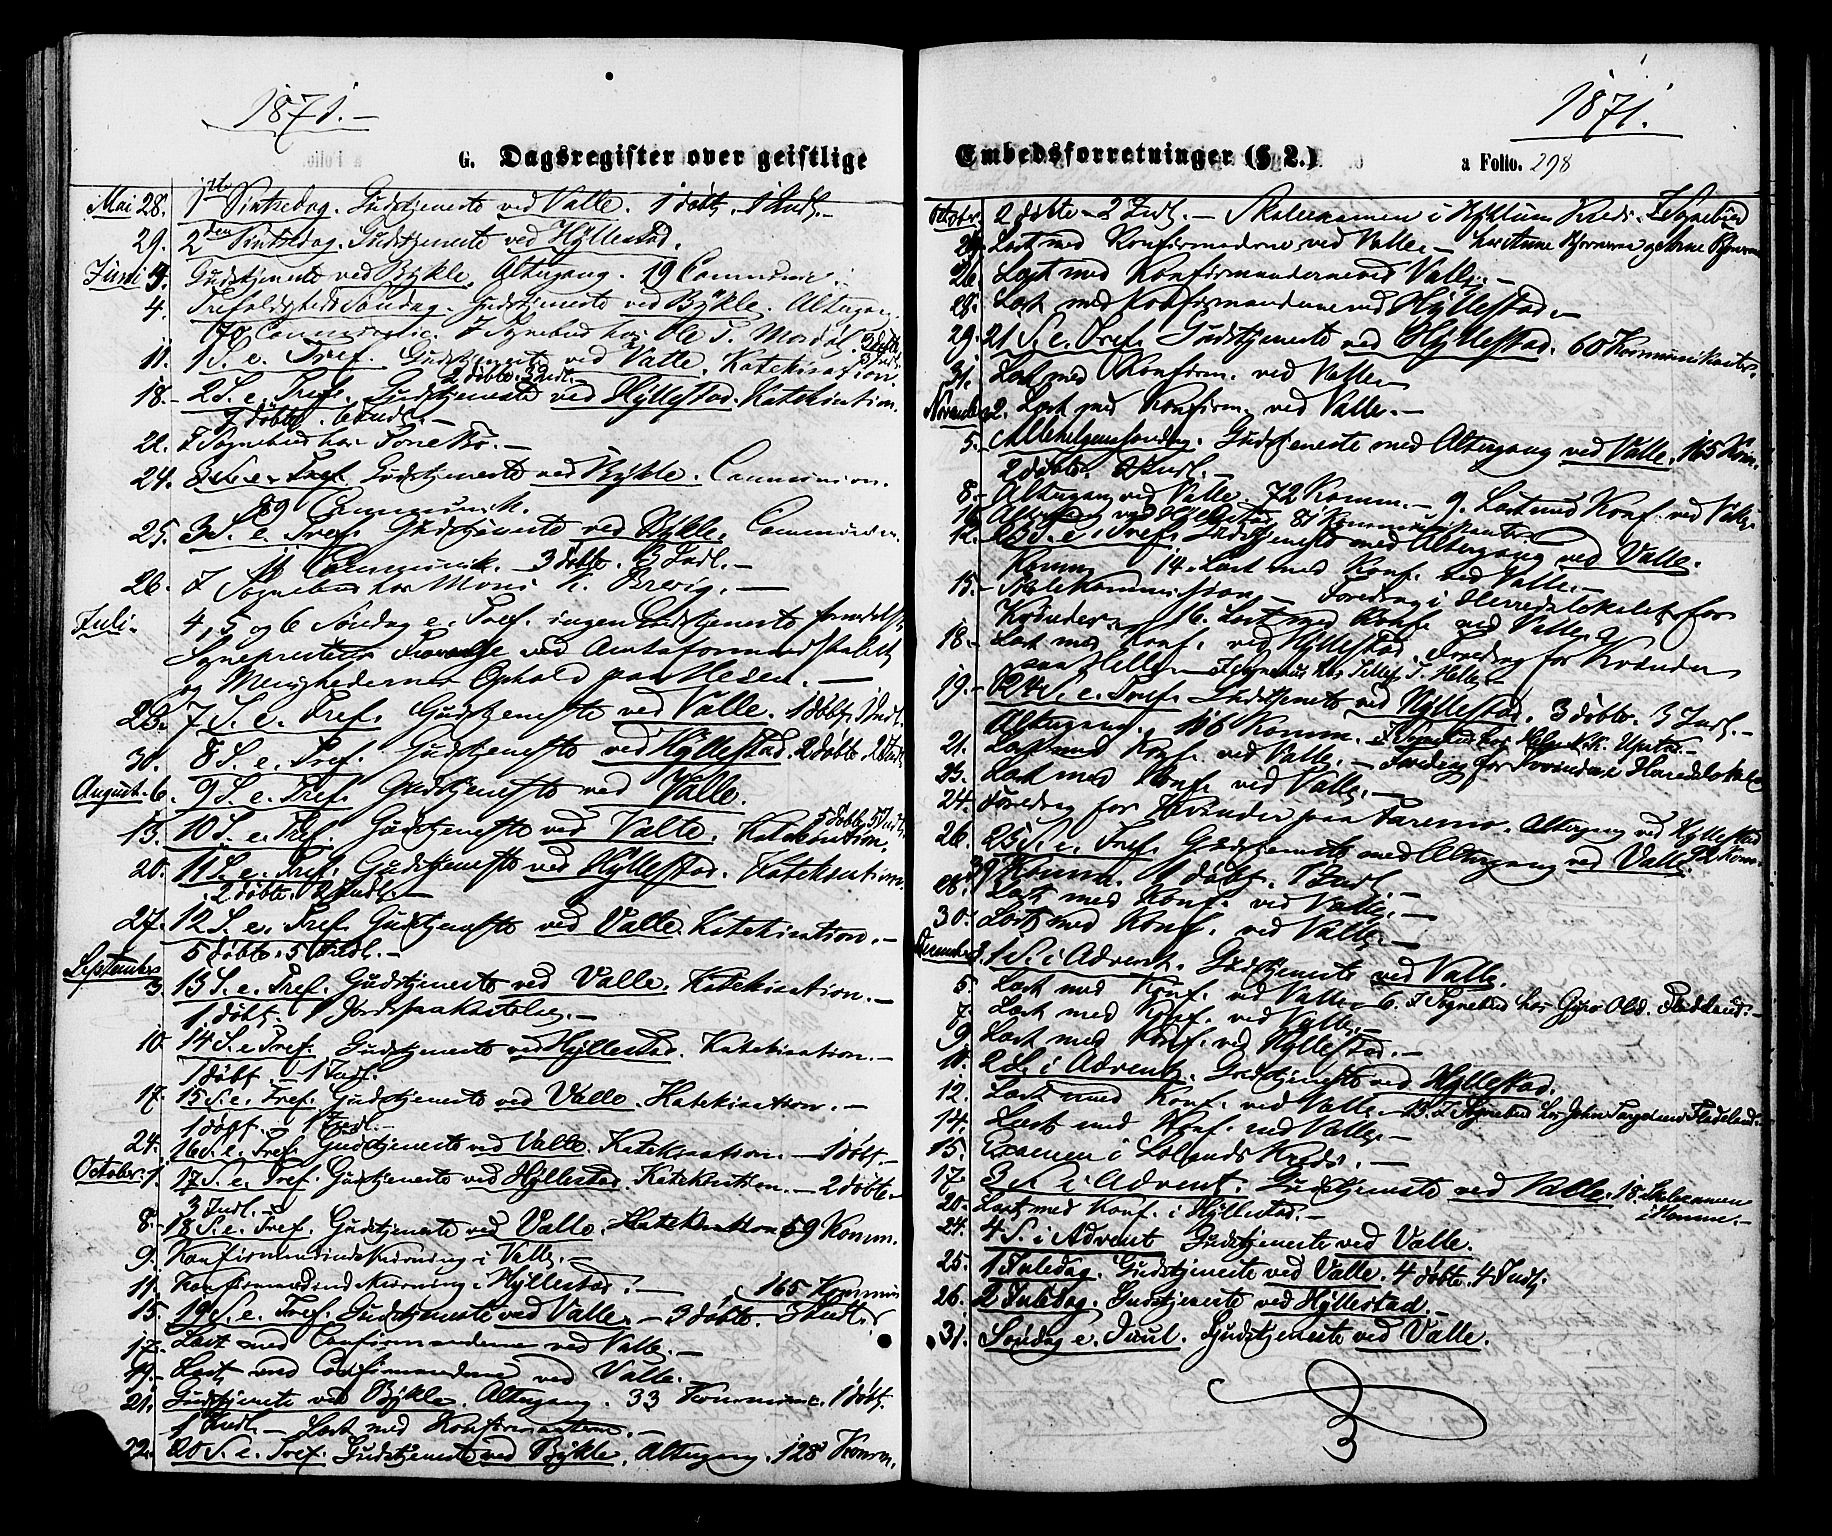 1871.-
G. Dagsregister over geistlige
Mai 28. 1ste Pintsedag. Gudstjeneste ved Valle. 1 døbt, 1 Indl.-
29. 2den Pintsedag. Gudstjeneste ved Hyllestad.
Juni 3. Gudstjeneste ved Bykle. Altergang. 19 Commun.
4. Trefoldigheds Søndag. Gudstjeneste ved Bykle. Altergang
70 Communic. I Sognebud hos Ole T. Mordal. 2 døbte
11. 1 S. e. Tref. Gudstjeneste ved Valle. Katekisation.
2 døbte. 3 Indl.-
18.- 2 S. e. Tref. Gudstjeneste ved Hyllestad. Katekisation.
7 døbte. 6 Indl.-
22. I Sognebud hos Tone Bø.-
24. S. e. Tref. Gudstjeneste ved Bykle. Communion.
89 Communik.
25. 3 S. e. Tref. Gudstjeneste ved Bykle. Communion
11 Communik.- 3 døbte. 3 Indl.-
26. I Sognebud hos K. Breivig.-
Juli. 4, 5 og 6 Søndag e. Tref. ingen Gudstjeneste formedelst
Sogneprestens Fravær ved Amtsformandskabet
og Menighedernes Ophold paa Heien.-
23. 7 S. e. Tref. Gudstjeneste ved Valle. 1 døbt. 1 Indl.
30. 8 S. e. Tref. Gudstjeneste ved Hyllestad. 2 døbte. 2 Indl.
August. 6. 9 S. e. Tref. Gudstjeneste ved Valle.
5 døbte 5 Indl.
13. 10 S. e. Tref. Gudstjeneste ved Valle. Katekisation.
20. 11 S. e. Tref. Gudstjeneste ved Hyllestad. Katekisation
2 døbte. 2 Indl.-
27. 12 S. e. Tref. Gudstjeneste ved Valle. Katekisation.-
5 døbte. 5 Indl.-
September 3. 13 S. e. Tref. Gudstjeneste ved Valle. Katekisation.-
1 døbt. 1 Jordspaakastelse.-
10. 14 S. e. Tref. Gudstjeneste ved Hyllestad. Katekisation.-
1 døbt - 1 Indl.
17. 15 S. e. Tref. Gudstjeneste ved Valle. Katekisation.-
1 døpt. 1 Indl.-
24. 16 S. e. Tref. Gudstjeneste ved Valle. Katekisation.- 1 døbt.-
October 1. 17 S. e. Tref. Gudstjeneste ved Hyllestad. Katekisation.- 2 døbte.
3 Indl.-
8.- 18 S. e. Tref. Gudstjeneste ved Valle. Katekisation 59 Komm.
9. Konfirmandindskrivning i Valle.-
11. Konfirmandindskrivning i Hyllestad.- 165 Kommun
15. 19 S. e. Tref. Gudstjeneste ved Valle.- 3 døbte. Indl.
17. Læst med Confirmanderne ved Valle.-
19.- Læst med Confirmanderne ved Valle.
21. Gudstjeneste ved Bykle. Altergang. 33 Kommun. 1 døbt.
1 Indl.- Læst med Konfirmanterne.-
22. 20 S. e. Tref. Gudstjeneste ved Bykle. Altergang. 128 Komm.
1871.
Embedsforretninger (§ 2.)
a Folio. 298
October. 2 døbte - 2 Indl.- Skoleexamen i Kreds. I Sognebud
24. Læst med Konfirmanderne ved Valle.- hos Anne
26. Læst med Konfirmanderne ved Valle.-
28. Læst med Konfirmanderne ved Hyllestad.-
29. 21 S. e. Tref. Gudstjeneste ved Hyllestad. 60 Kommunikanter.
31. Læst med Konfirm. ved Valle.-
November 2. Læst med Konfirm. ved Valle.-
5. Allehelgenssøndag. Gudstjeneste med Altergang ved Valle. 165 Kom.
2 døbte. 2 Indl.-
8.- Altergang ved Valle. 72 Komm.- 9. Læst med Konf. ved Valle.
Altergang ved Hyllestad. 81 Kommunikanter
12. S. e. Tref. Gudstjeneste med Altergang ved Valle.
Komm. 14. Læst med Konf. ved Valle.-
15.- Skolekommission.- Foredrag i Herredslokalet for
Kvinder. 16. Læst med Konf. ved Valle.
18.- Læst med Konf. ved Hyllestad. Foredrag for Kvinder
paa Helle.- I Sognebud hos T. Helle.
19.- 24 S. e. Tref. Gudstjeneste ved Hyllestad. 3 døbte. 3 Indl.-
Altergang. 116 Komm. I Sognebud hos K. Upstad.-
21. Læst med Konf. ved Valle.- Foredrag for Kvinder i Herredslokalet
23. Læst med Konf. ved Valle.-
24. Foredrag for Kvinder paa . Altergang ved Hyllestad
26. 25 S. e. Tref. Gudstjeneste med Altergang ved Valle. 92 Komm.
39 Komm. 1 døbt. 1 Indl.-
28. Læst med Konf. ved Valle.-
30. Læst med Konf. ved Valle.-
December 3. 1 S. i Advent. Gudstjeneste ved Valle.
5. Læst med Konf. ved Valle. 6. I Sognebud hos Gyro Olsd. Flateland.-
7. Læst med Konf. ved Valle.-
9. Læst med Konf. ved Hyllestad.-
10. 2 S. i Advent. Gudstjeneste ved Hyllestad.
12. Læst med Konf. ved Valle.- 13. I Sognebud hos John Torgeirsen Flateland.-
14. Læst med Konf. ved Valle.-
15. Examen i Løland Kreds.-
17. 3 S. i Advent. Gudstjeneste ved Valle. 18. Skolexamen
i Homme.-
20. Læst med Konf. i Hyllestad.-
24. 4 S. i Advent Gudstjeneste ved Valle.
25. 1 Juledag. Gudstjeneste ved Valle. 4 døbte. 4 Indl.
26. 2 Juledag. Gudstjeneste ved Hyllestad.-
31. Søndag e. Juul. Gudstjeneste ved Valle.